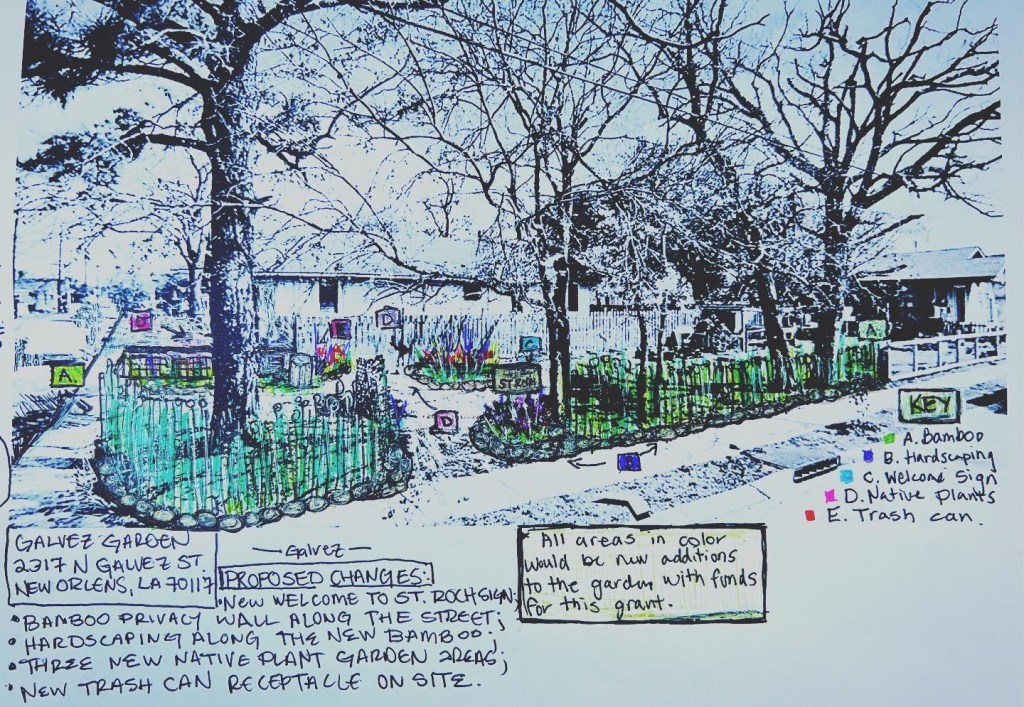 D
E
D
C
A
A
ST. ROCH
D
B
KEY
A. Bamboo
B. Hardscaping
C. Welcome Sign
D. Native plants
E. Trash can.
GALVEZ GARDEN
2317 N GALVEZ ST.
NEW ORLENS, LA 70117
— Galvez —
PROPOSED CHANGES:
• NEW WELCOME TO ST. ROCH SIGN;
• BAMBOO PRIVACY WALL ALONG THE STREET;
• HARDSCAPING ALONG THE NEW BAMBOO;
• THREE NEW NATIVE PLANT GARDEN AREAS;
• NEW TRASH CAN RECEPTACLE ON SITE.
* All areas in color
would be new additions
to the garden with funds
for this grant.